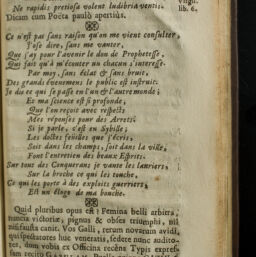 Ne rapidis pretiosa volent ludibria ventis.
Virgil.
lib. 6.
Dicam cum Poëta paulò apertiùs.
Ce n'est pas sans raison qu'on me vient consulter,
J'ose dire, sans me vanter,
Que j'ay pour l'avenir le don de Prophetesse,
Que qu'à m'écouter un chacun s'interesse.
Par moy, sans éclat & sans bruit,
Des grands évenemens le public est instruit.
Je dis ce qui se passe en l'un & l'autre monde;
Et ma science est si profonde,
Que l'on reçoit avec respect
Mes réponses pour des Arrets.
Si je parle, c'est en Sybille;
Les doctes feüilles que j'écris,
Soit dans les champs, soit dans la ville,
Font l'entretien des beaux Esprits.
Sur tout des Conquerans je vante les lauriers;
Sur la broche ce qui les touche,
Ce qui les porte à des exploits guerriers,
Est un éloge de ma bouche.
Quid pluribus opus est? Femina belli arbitra,
nuncia victoriæ, pignus & obses triumphi, nil
nisi fausta canit. Vos Galli, rerum novarum avidi,
qui spectatores huc veneratis, sedete nunc audito-
res, dum vobis ex Officina recens Typis expres-